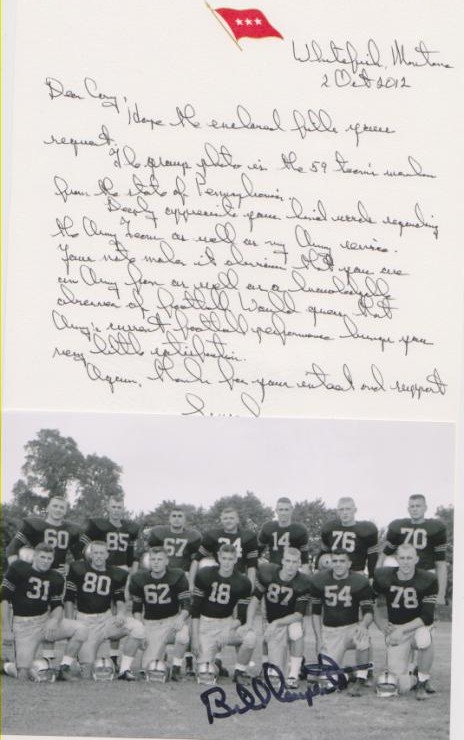 Whitefish, Montana
2 Oct 2012
Dear Cory,
I hope the enclosed fills your
request.
The group photo is the 59 team's members
from the state of Pennsylvania.
Deeply appreciate your kind words regarding
the Army Team as well as my Army service.
Your note makes it obvious that you are
an Army fan as well as a knowledgeable
observer of football. Would guess that
Army's current football performance brings you
very little satisfaction.
Again, thanks for your interest and support
60 85 67 24 14 76 70
31 80 62 18 87 54 78
Bill Carpenter